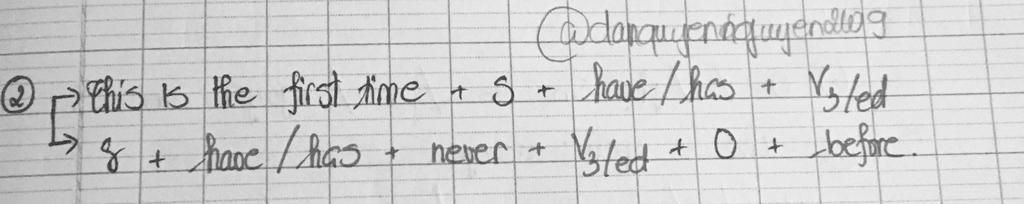 @danquyennguyen2109
② → This is the first time + S + have / has + V3/ed
→ S + have / has + never + V3/ed + O + before.